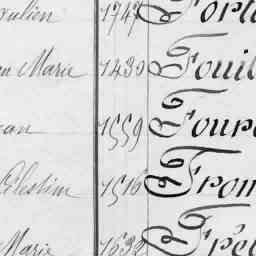 oulien 1747 Fort
Marie 1430 Fouil
an 1559 Four
Célestine 1516 From
Marie 1632 Fré